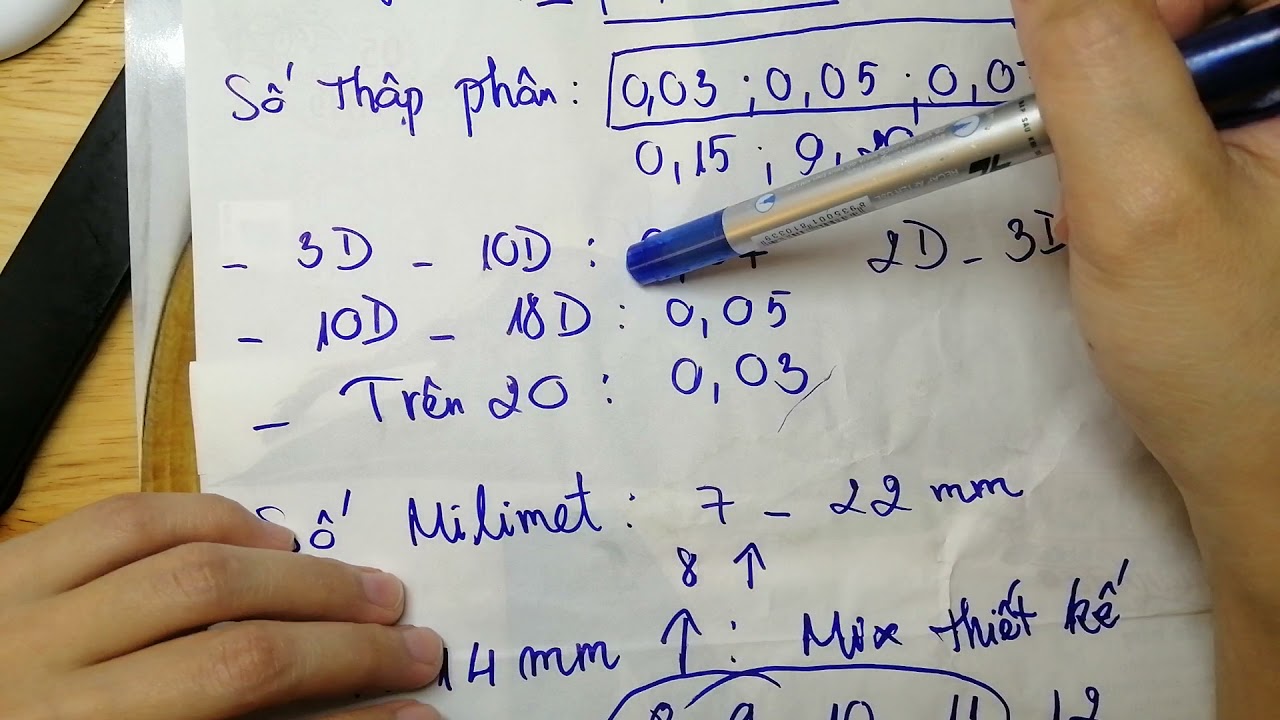 Số thập phân: 0,03 ; 0,05 ; 0,0
0,15 ;
- 3D - 10D : 2D - 3D
- 10D - 18D : 0,05
- Trên 20 : 0,03
Số Milimet : 7 - 22 mm
8 ↑
14 mm ↑ : Mix thiết kế
8 9 10 11 12